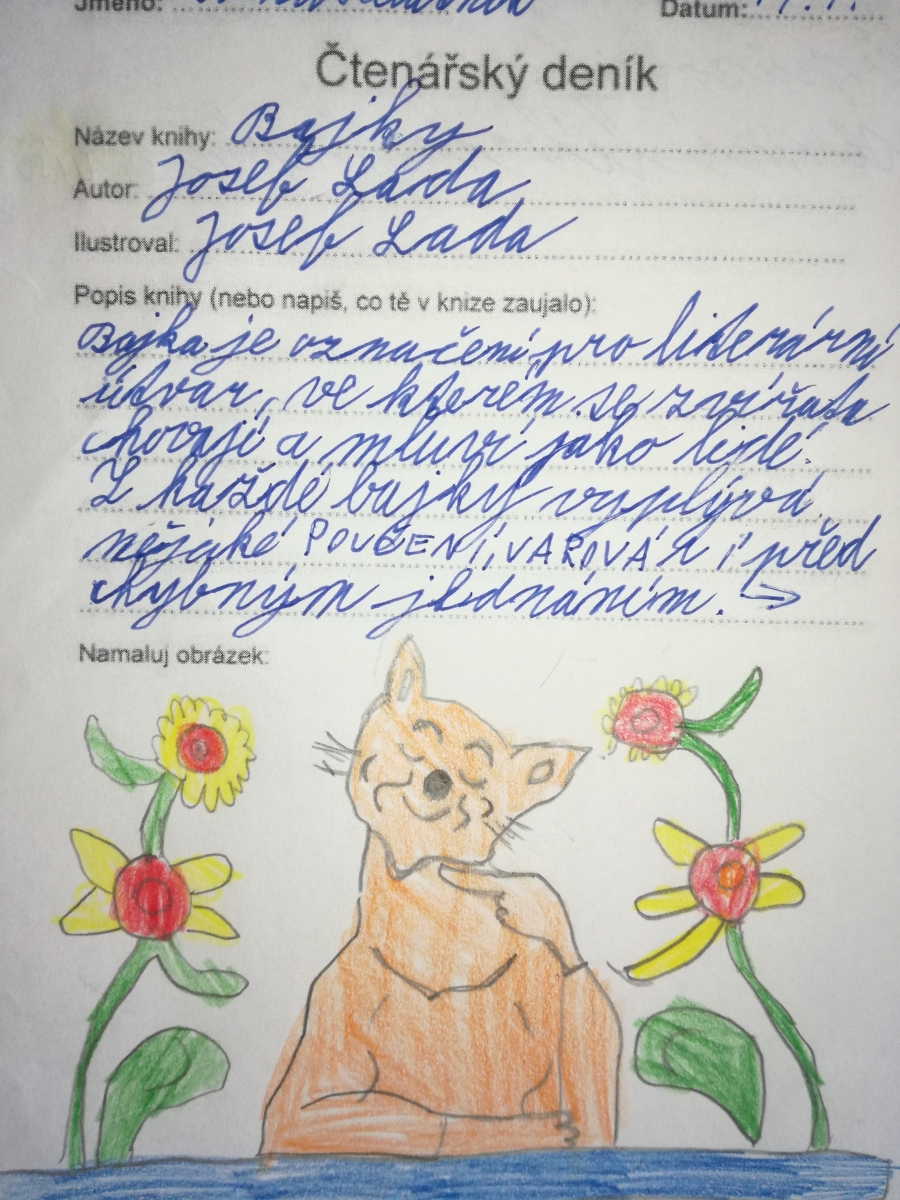 Jméno:
Datum:
Čtenářský deník
Název knihy: Bajky
Autor: Josef Lada
Ilustroval: Josef Lada
Popis knihy (nebo napiš, co tě v knize zaujalo):
Bajka je označení pro literární
útvar, ve kterém se zvířata
chovají a mluví jako lidé.
Z každé bajky vyplývá
nějaké POUČENÍ, VAROVÁNÍ před
chybným jednáním. →
Namaluj obrázek: